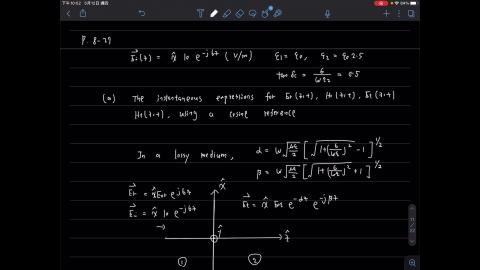 下午10:02 5月12日 週四
84%
P. 8-27
E⃗i(z) = x̂ 10 e^-j6z (V/m) ε1 = ε0, ε2 = ε0 2.5
tan δc = σ/ωε2 = 0.5
(a) The instantaneous expressions for Er(z,t), Hr(z,t), Et(z,t)
Ht(z,t), using a cosine reference
In a lossy medium, α = ω√(με/2) [√(1+(σ/ωε)^2) - 1]^1/2
β = ω√(με/2) [√(1+(σ/ωε)^2) + 1]^1/2
x̂
E⃗r = x̂ Ero e^j6z E⃗t = x̂ Eto e^-αz e^-jβz
E⃗i = x̂ 10 e^-j6z
ŷ ẑ
① ②